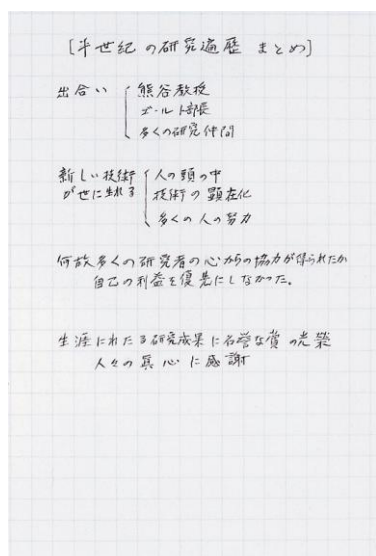 [半世紀の研究遍歴 まとめ]
出合い 熊谷教授
ゴールト部長
多くの研究仲間
新しい技術 人の頭の中
が世に生れる 技術の顕在化
多くの人の努力
何故多くの研究者の心からの協力が得られたか
自己の利益を優先にしなかった。
生涯にわたる研究成果に名誉な賞の光栄
人々の真心に感謝